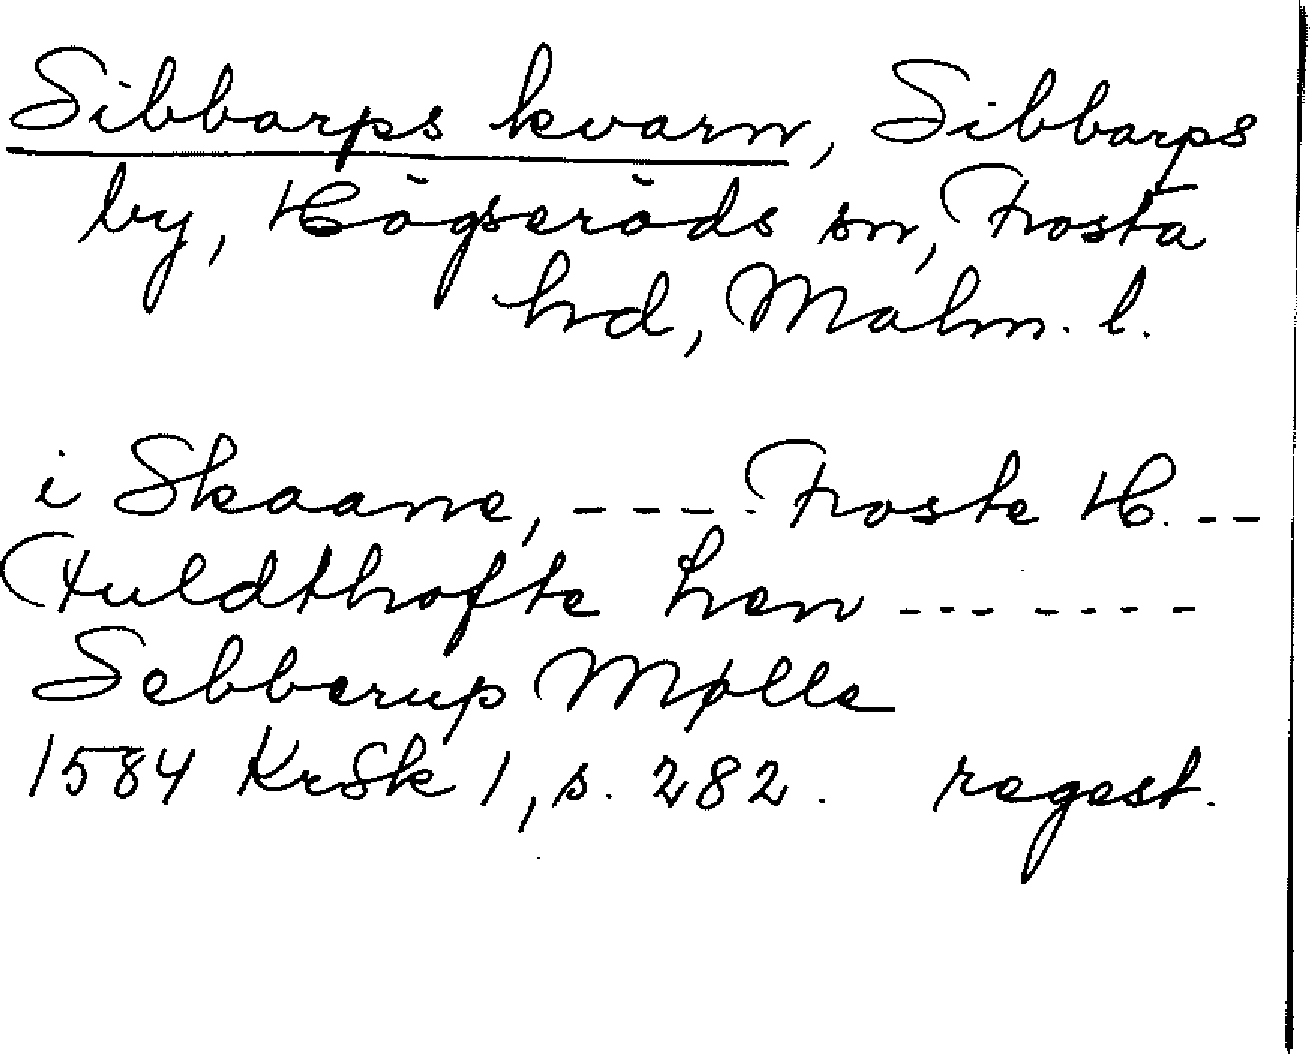 Sibbarps kvarn, Sibbarps
by, Högseröds sn, Frosta
hd, Malm. l.
i Skaane, - - - - Froste H. - -
Fuldthofte Len - - - - - - -
Sebberup Mølle
1584 KrSk 1, s. 282. regest.